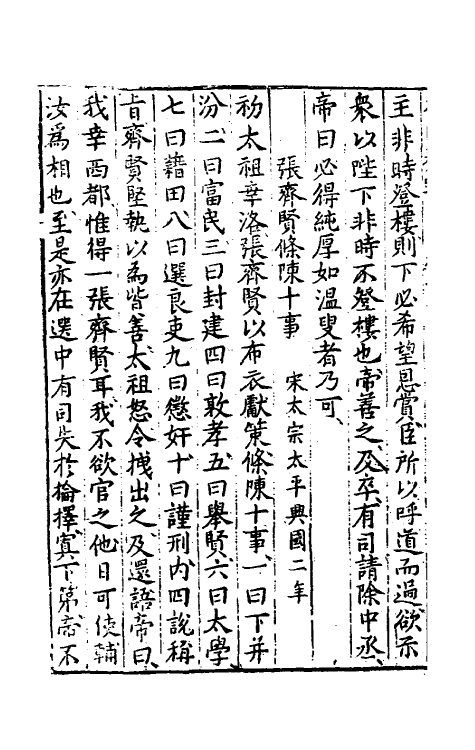 主非時登樓則下必希望恩賞臣所以呼道而過欲示
衆以陛下非時不登樓也帝善之及卒有司請除中丞
帝曰必得純厚如溫叟者乃可
張齊賢條陳十事 宋太宗太平興國二年
初太祖幸洛張齊賢以布衣獻策條陳十事一曰下并
汾二曰富民三曰封建四曰敦孝五曰舉賢六曰太學
七曰籍田八曰選良吏九曰懲奸十曰謹刑内四說稱
旨齊賢堅執以為皆善太祖怒令拽出之及還語帝曰
我幸西都惟得一張齊賢耳我不欲官之他日可使輔
汝為相也至是亦在選中有司失於掄擇寘下第帝不